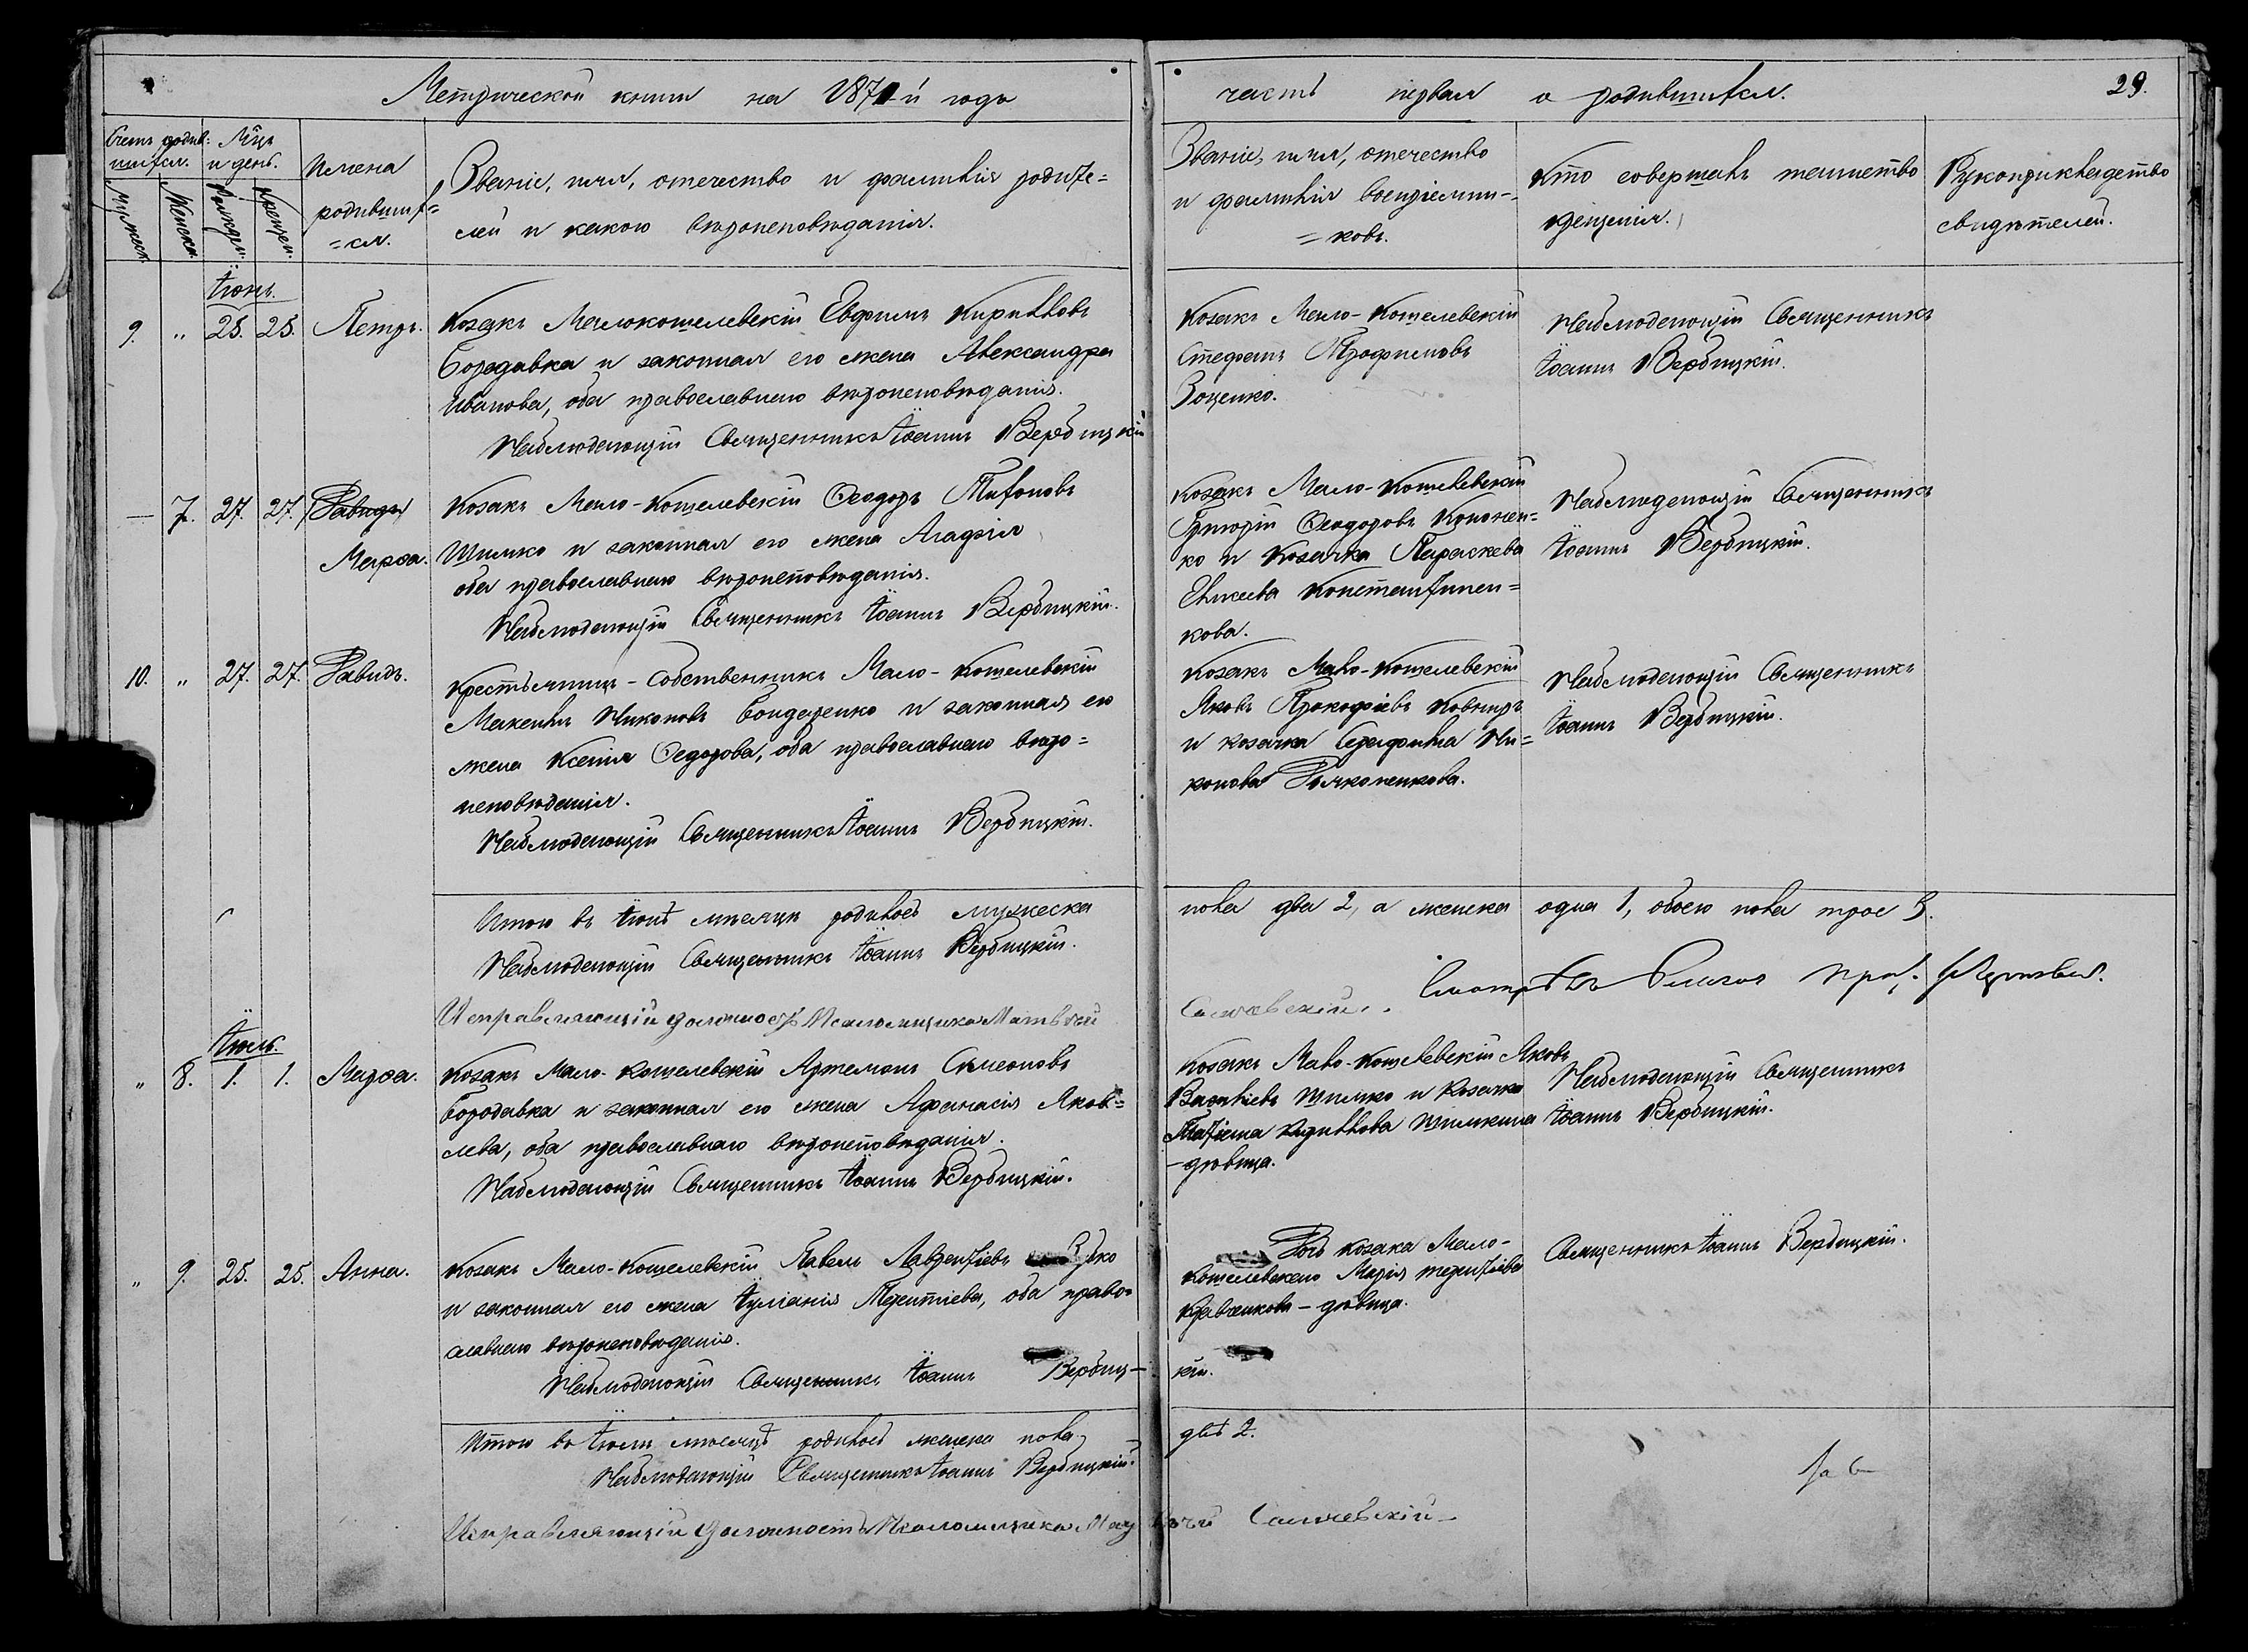 Метрической книги на 1871й годъ
часть первая о родившихся.
29.
Счетъ родив:
шихся.
Мужеск.
Женска.
Мцъ
и день.
Рожден.
Крещен.
Имена
родивших=
=ся.
Званіе, имя, отечество и фамилія родите=
лей и какого вѣроисповѣданія.
Званіе, имя, отечество
и фамилія воспріемни=
=ковъ.
Кто совершалъ таинство
крещенія.
Рукоприкладство
свидѣтелей.
Іюнь.
9. „ 25. 25. Петръ.
Козакъ Малокошелевскій Ефимъ Кирилловъ
Бородавка и законная его жена Александра
Иванова, оба православнаго вѣроисповѣданія.
Наблюдающій Священникъ Іоаннъ Вербицкій
Козакъ Мало-Кошелевскій
Стефанъ Трофимовъ
Зоценко.
Наблюдающій Священникъ
Іоаннъ Вербицкій.
— 7. 27. 27. Давидъ
Марѳа.
Козакъ Мало-Кошелевскій Ѳеодоръ Тихоновъ
Шилко и законная его жена Агафія
оба православнаго вѣроисповѣданія.
Наблюдающій Священникъ Іоаннъ Вербицкій.
Козакъ Мало-Кошелевскій
Григорій Ѳеодоровъ Кононен=
ко и Козачка Параскева
Константинен=
кова.
Наблюдающій Священникъ
Іоаннъ Вербицкій.
10. „ 27. 27. Давидъ.
Крестьянинъ-Собственникъ Мало-Кошелевскій
Максимъ Никоновъ Бондаренко и законная его
жена Ксенія Ѳедорова, оба православнаго вѣро=
исповѣданія.
Наблюдающій Священникъ Іоаннъ Вербицкій.
Козакъ Мало-Кошелевскій
Яковъ Прокофіевъ Ковтунъ
и козачка Серафима Ни=
конова Дьяконенкова.
Наблюдающій Священникъ
Іоаннъ Вербицкій.
Итого въ Іюнѣ мѣсяцѣ родилось мужеска
пола два 2, а женска одна 1, обоего пола трое 3.
Наблюдающій Священникъ Іоаннъ Вербицкій.
Исправляющій должность Псаломщика Матвѣй
Смотрѣлъ
Іюль.
„ 8. 1. 1. Марѳа.
Козакъ Мало-Кошелевскій Артемонъ Симеоновъ
Бородавка и законная его жена Афанасія Яков=
лева, оба православнаго вѣроисповѣданія.
Наблюдающій Священникъ Іоаннъ Вербицкій.
Козакъ Мало-Кошелевскій Яковъ
Васильевъ Шилко и Козачка
Татіана Кириллова Шилкина
-дѣвица.
Наблюдающій Священникъ
Іоаннъ Вербицкій.
„ 9. 25. 25. Анна.
Козакъ Мало-Кошелевскій Павелъ Лаврентіевъ
и законная его жена Іуліанія Терентіева, оба право=
славнаго вѣроисповѣданія.
Наблюдающій Священникъ Іоаннъ Вербиц-
кій.
Дочь козака Мало-
Кошелевскаго Марія Терентіева
Кравченкова - дѣвица.
Священникъ Іоаннъ Вербицкій.
Итого въ Іюлѣ мѣсяцѣ родилось женска пола
двѣ 2.
Наблюдающій Священникъ Іоаннъ Вербицкій.
Исправляющій должность Псаломщика Матвѣй